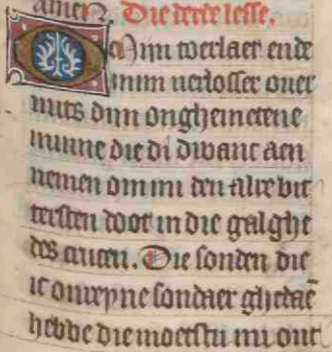 amen. Die derde lesse.
O Mijn voerlaet ende
mijn verlosser ouer
mits dijn onghemetene
minne die di dwanc aen
nemen om mi den alre bit
tersten doot in die galghe
des crucen. Die sonden die
ic onreyne sondaer ghedaē
hebbe die moetstu mi ont